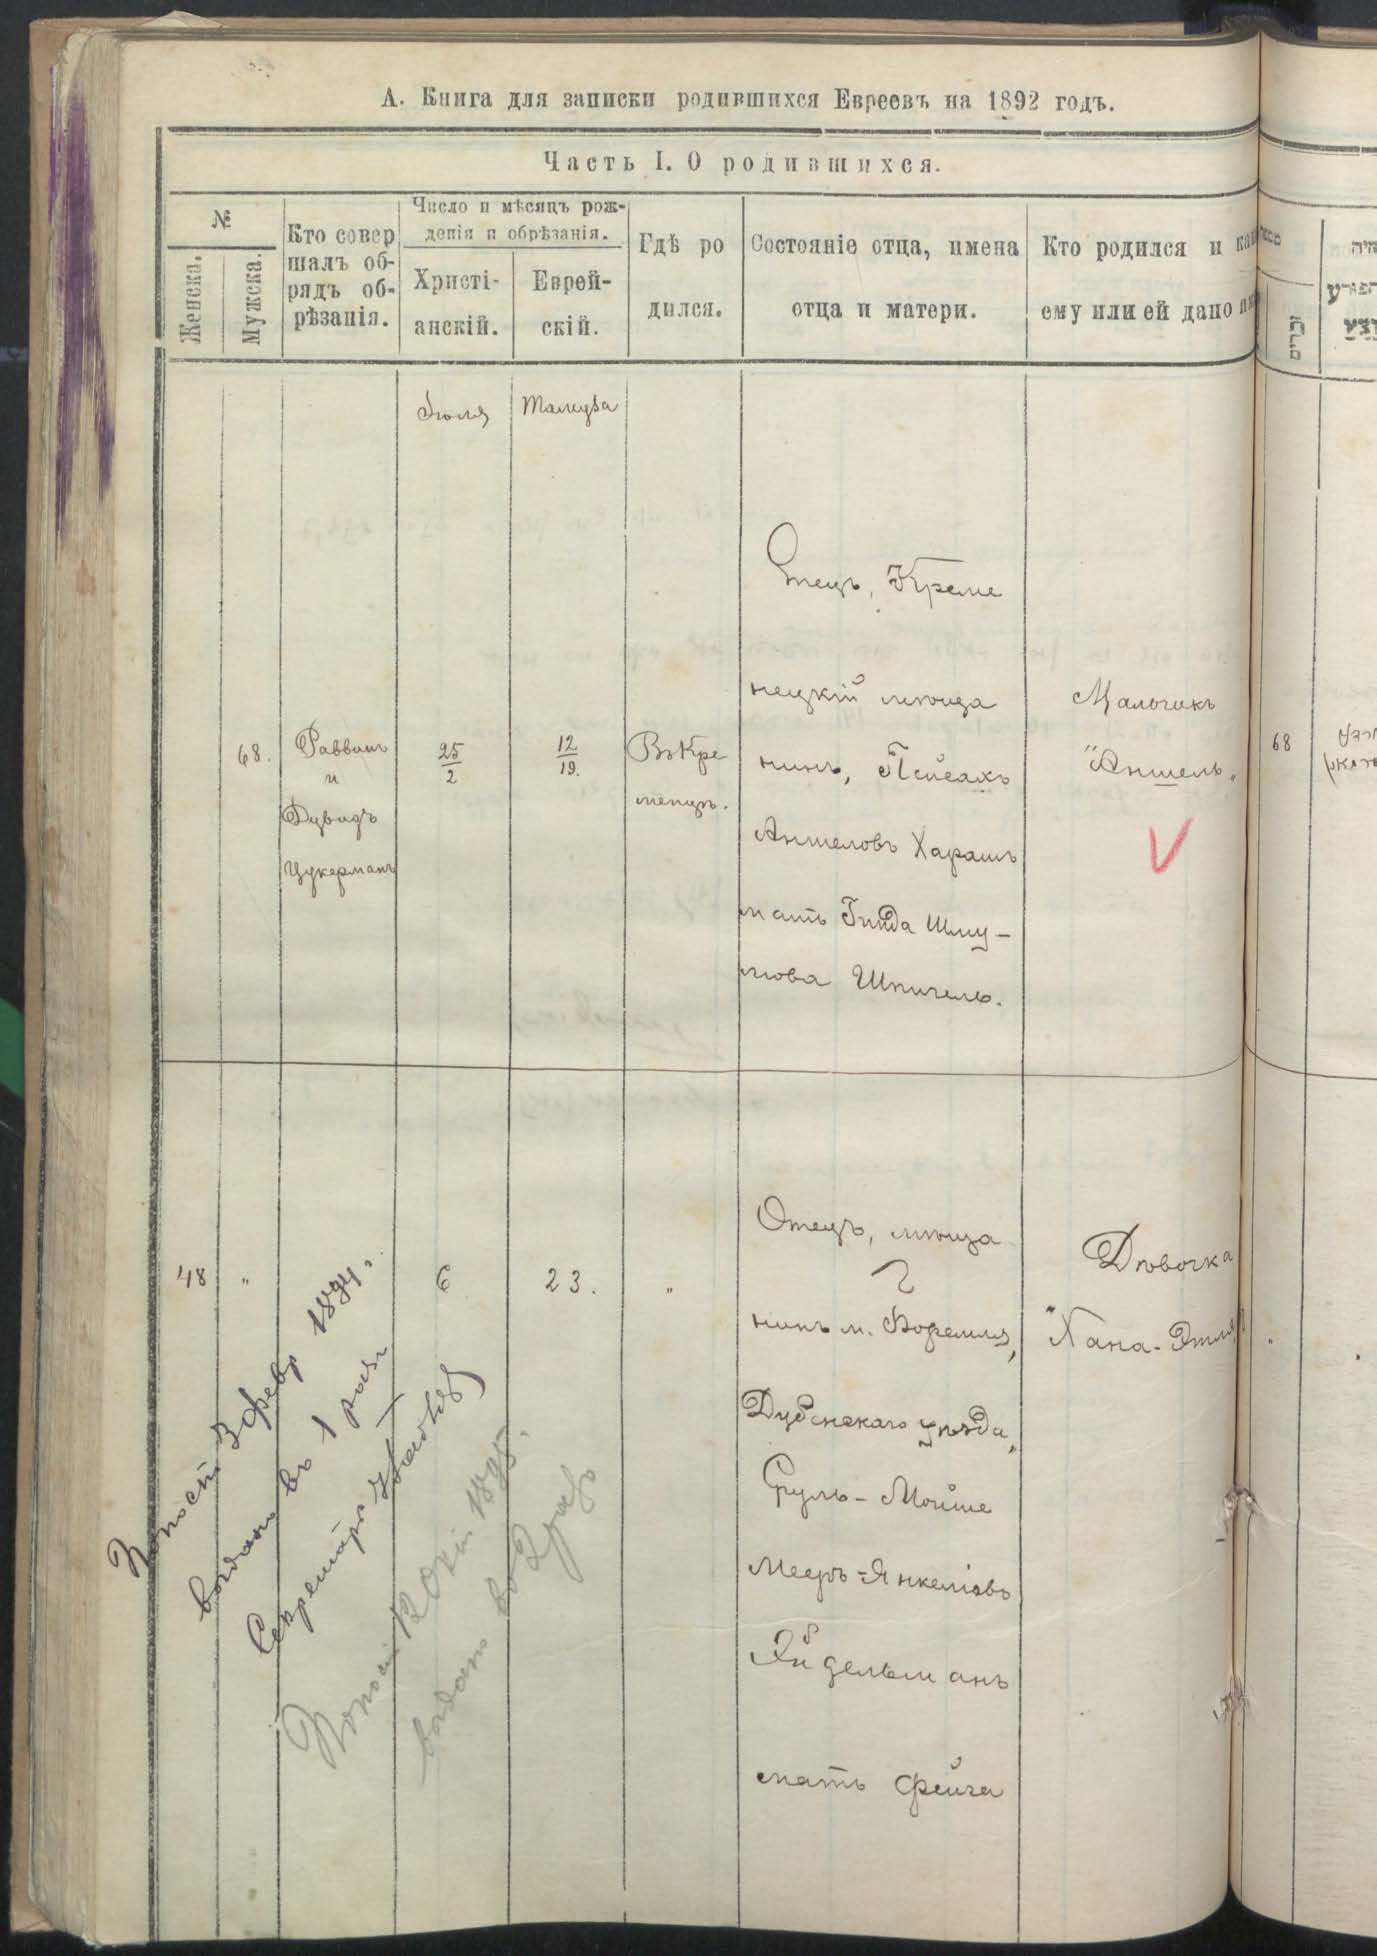 А. Книга для записки родившихся Евреевъ на 1892 годъ.
Часть I. О родившихся.
№
Женска.
Мужска.
Кто совер
шалъ об-
рядъ об-
рѣзанія.
Число и мѣсяцъ рож-
денія и обрѣзанія.
Христі-
анскій.
Еврей-
скій.
Гдѣ ро
дился.
Состояніе отца, имена
отца и матери.
Кто родился и
ему или ей дано
Іюля
Тамуза
68.
Раввинъ
и
Дувидъ
Цукерманъ
25
2
12
19.
Въ Кре
менцѣ.
Отецъ, Креме
нецкій мѣща
нинъ, Пейсахъ
Аншеловъ Харашъ
мать Гинда Шму-
лова Шпигель.
Мальчикъ
"Аншель"
V
68
48
"
6
23.
"
Отецъ, мѣща
нинъ м. Боремля,
Дубенскаго уѣзда,
Сруль-Мойше
Мееръ-Янкелiовъ
Эйдельманъ
мать Фейга
Дѣвочка
"Хана-Этля
Копія 3 февр 1894.
выдана въ 1 разъ
Секретарь
Копія 12 1895.
выдана во 2 разъ
זכרים